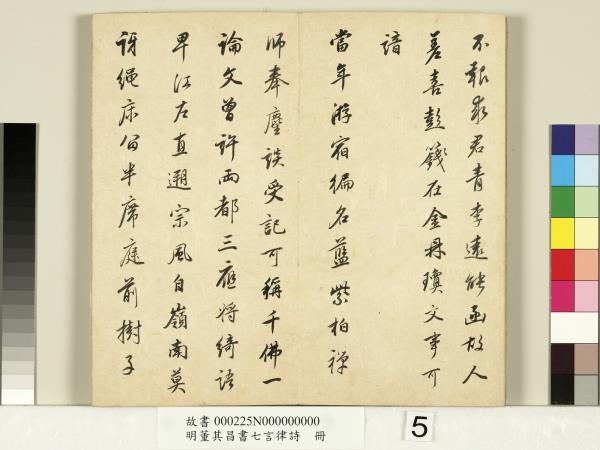 不報求君青李遠能函故人
差喜彭籛在金丹瓊文事可
諳
當年游宿徧名藍紫柏禪
師奉麈談受記可稱千佛一
論文曾許兩都三應將綺語
卑江左直遡宗風自嶺南莫
訝繩床分半席庭前樹子
故書 000225N000000000
明董其昌書七言律詩 冊
5